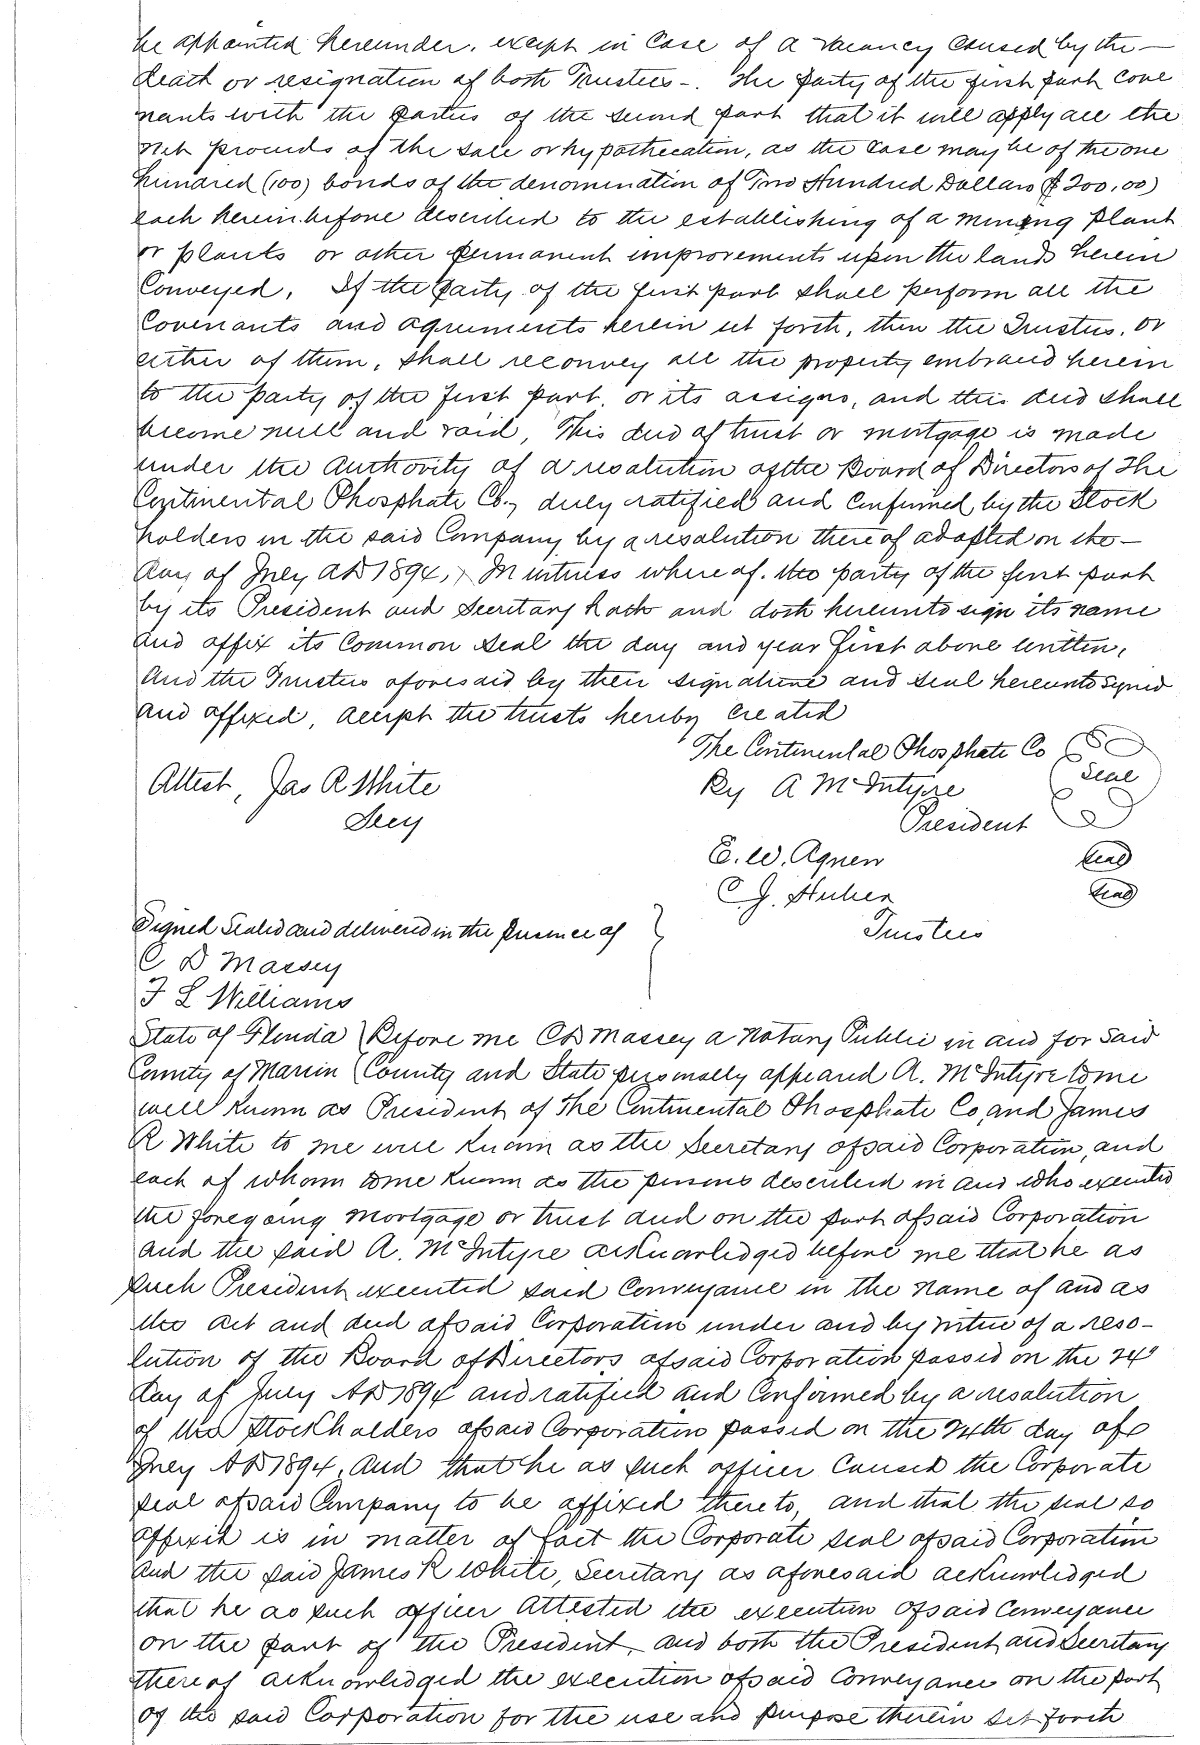 be appointed hereunder. except in Case of a vacancy caused by the —
death or resignation of both Trustees -. The party of the first part cove
nants with the parties of the second part that it will apply all the
net proceeds of the sale or hypothecation, as the case may be of the one
hundred (100) bonds of the denomination of Two Hundred Dollars ($200.00)
each herein before described to the establishing of a mining plant
or plants or other permanent improvements upon the lands herein
Conveyed. If the party of the first part shall perform all the
Covenants and agreements herein set forth, then the Trustees. or
either of them, shall reconvey all the property embraced herein
to the party of the first part. or its assigns, and this deed shall
become null and void, This deed of trust or mortgage is made
under the authority of a resolution of the Board of Directors of The
Continental Phosphate Co., duly ratified and confirmed by the Stock
holders in the said Company by a resolution thereof adopted on the —
day of July AD 1894, In witness where of. the party of the first part
by its President and Secretary hath and doth hereunto sign its name
and affix its Common Seal the day and year first above written,
And the Trustees aforesaid by their signature and seal hereunto signed
and affixed, accept the trusts hereby created
The Continental Phosphate Co
Seal
Attest, Jas R White
By A McIntyre
Secy
President
E. W. Agnew
Seal
C J. Huber
Seal
Signed Sealed and delivered in the presence of }
Trustees
C D Massey
F L Williams
State of Florida ) Before me CD Massey a Notary Public in and for said
County of Marion ( County and State personally appeared A. McIntyre to me
well known as President of The Continental Phosphate Co, and James
R White to me well known as the Secretary of said Corporation, and
each of whom to me known as the persons described in and who executed
the foregoing mortgage or trust deed on the part of said Corporation
and the said A. McIntyre acknowledged before me that he as
such President executed said Conveyance in the name of and as
the act and deed of said Corporation under and by virtue of a reso-
lution of the Board of Directors of said Corporation passed on the 24"
day of July AD 1894 and ratified and Confirmed by a resolution
of the Stockholders of said Corporation passed on the 24th day of
July AD 1894, And that he as such officer caused the Corporate
seal of said Company to be affixed thereto, and that the seal so
affixed is in matter of fact the Corporate seal of said Corporation
And the said James R White, Secretary as aforesaid acknowledged
that he as such officer attested the execution of said Conveyance
on the part of the President, and both the President and Secretary
thereof acknowledged the execution of said Conveyance on the part
of the said Corporation for the use and purpose therein set forth